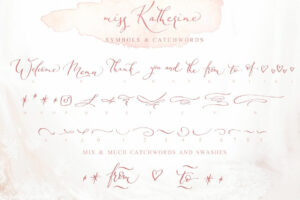 miss Katherine
SYMBOLS & CATCHWORDS
Welcome Menu Thank you and the from to of
MIX & MUCH CATCHWORDS AND SWASHES
from to